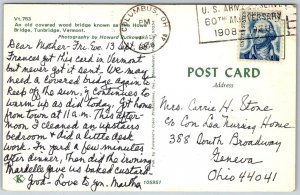 VT.753
An old covered wood bridge known as the Hunt
Bridge, Tunbridge, Vermont.
Photography by Howard
Dear Mother - Fri. Eve 13 Sept. 68
Frances got this card in Vermont
but never got it sent. We may
need a covered bridge again to
Keep of the sun, it continues to
warm up as did today. Got home
from town at 11 a.m. This after-
noon I cleaned an upstairs
bedroom & did a little desk
work. In yard a few minutes
after dinner, then did the ironing.
Mardelle give us baked custard.
Good - Love to you. Martha
K
105951
COLUMBUS, OH
PM
U. S. ARMY RESERVE
60TH ANNIVERSARY
1908
POST CARD
Address
Mrs. Carrie H. Stone
c/o Con Lea Nursing Home
388 South Broadway
Geneva
Ohio 44041